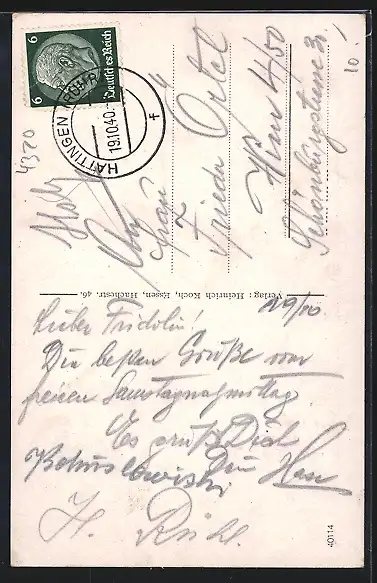 6 6
Deutsches Reich
HATTINGEN (RUHR)
19.10.40
f
4320
Frau
Frieda Ortel
Wien 4/50
Schönburgstrasse 3
10.1
Verlag: Heinrich Koch, Essen, Hachestr. 46.
19/10.
Lieber Fridolin!
Die besten Grüße vom
freien Samstagnachmittag
Es grüßt Dich
Dein Hans
H.
40114